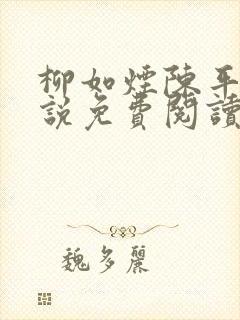 柳如煙陳平
說免費閱讀
魏多麗